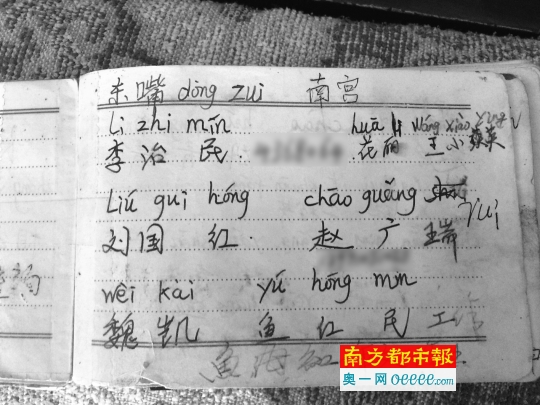 东嘴 dōng zuǐ 南宫
Li zhi mín huā li wáng xiǎo
李治 民 花丽 王小英
Liú gui hóng chāo guǎng rui
刘国 红 赵广瑞
wēi kài yú hóng mín
魏凯 鱼红民 工
鱼
南方都市報
奥一网 oeeee.com